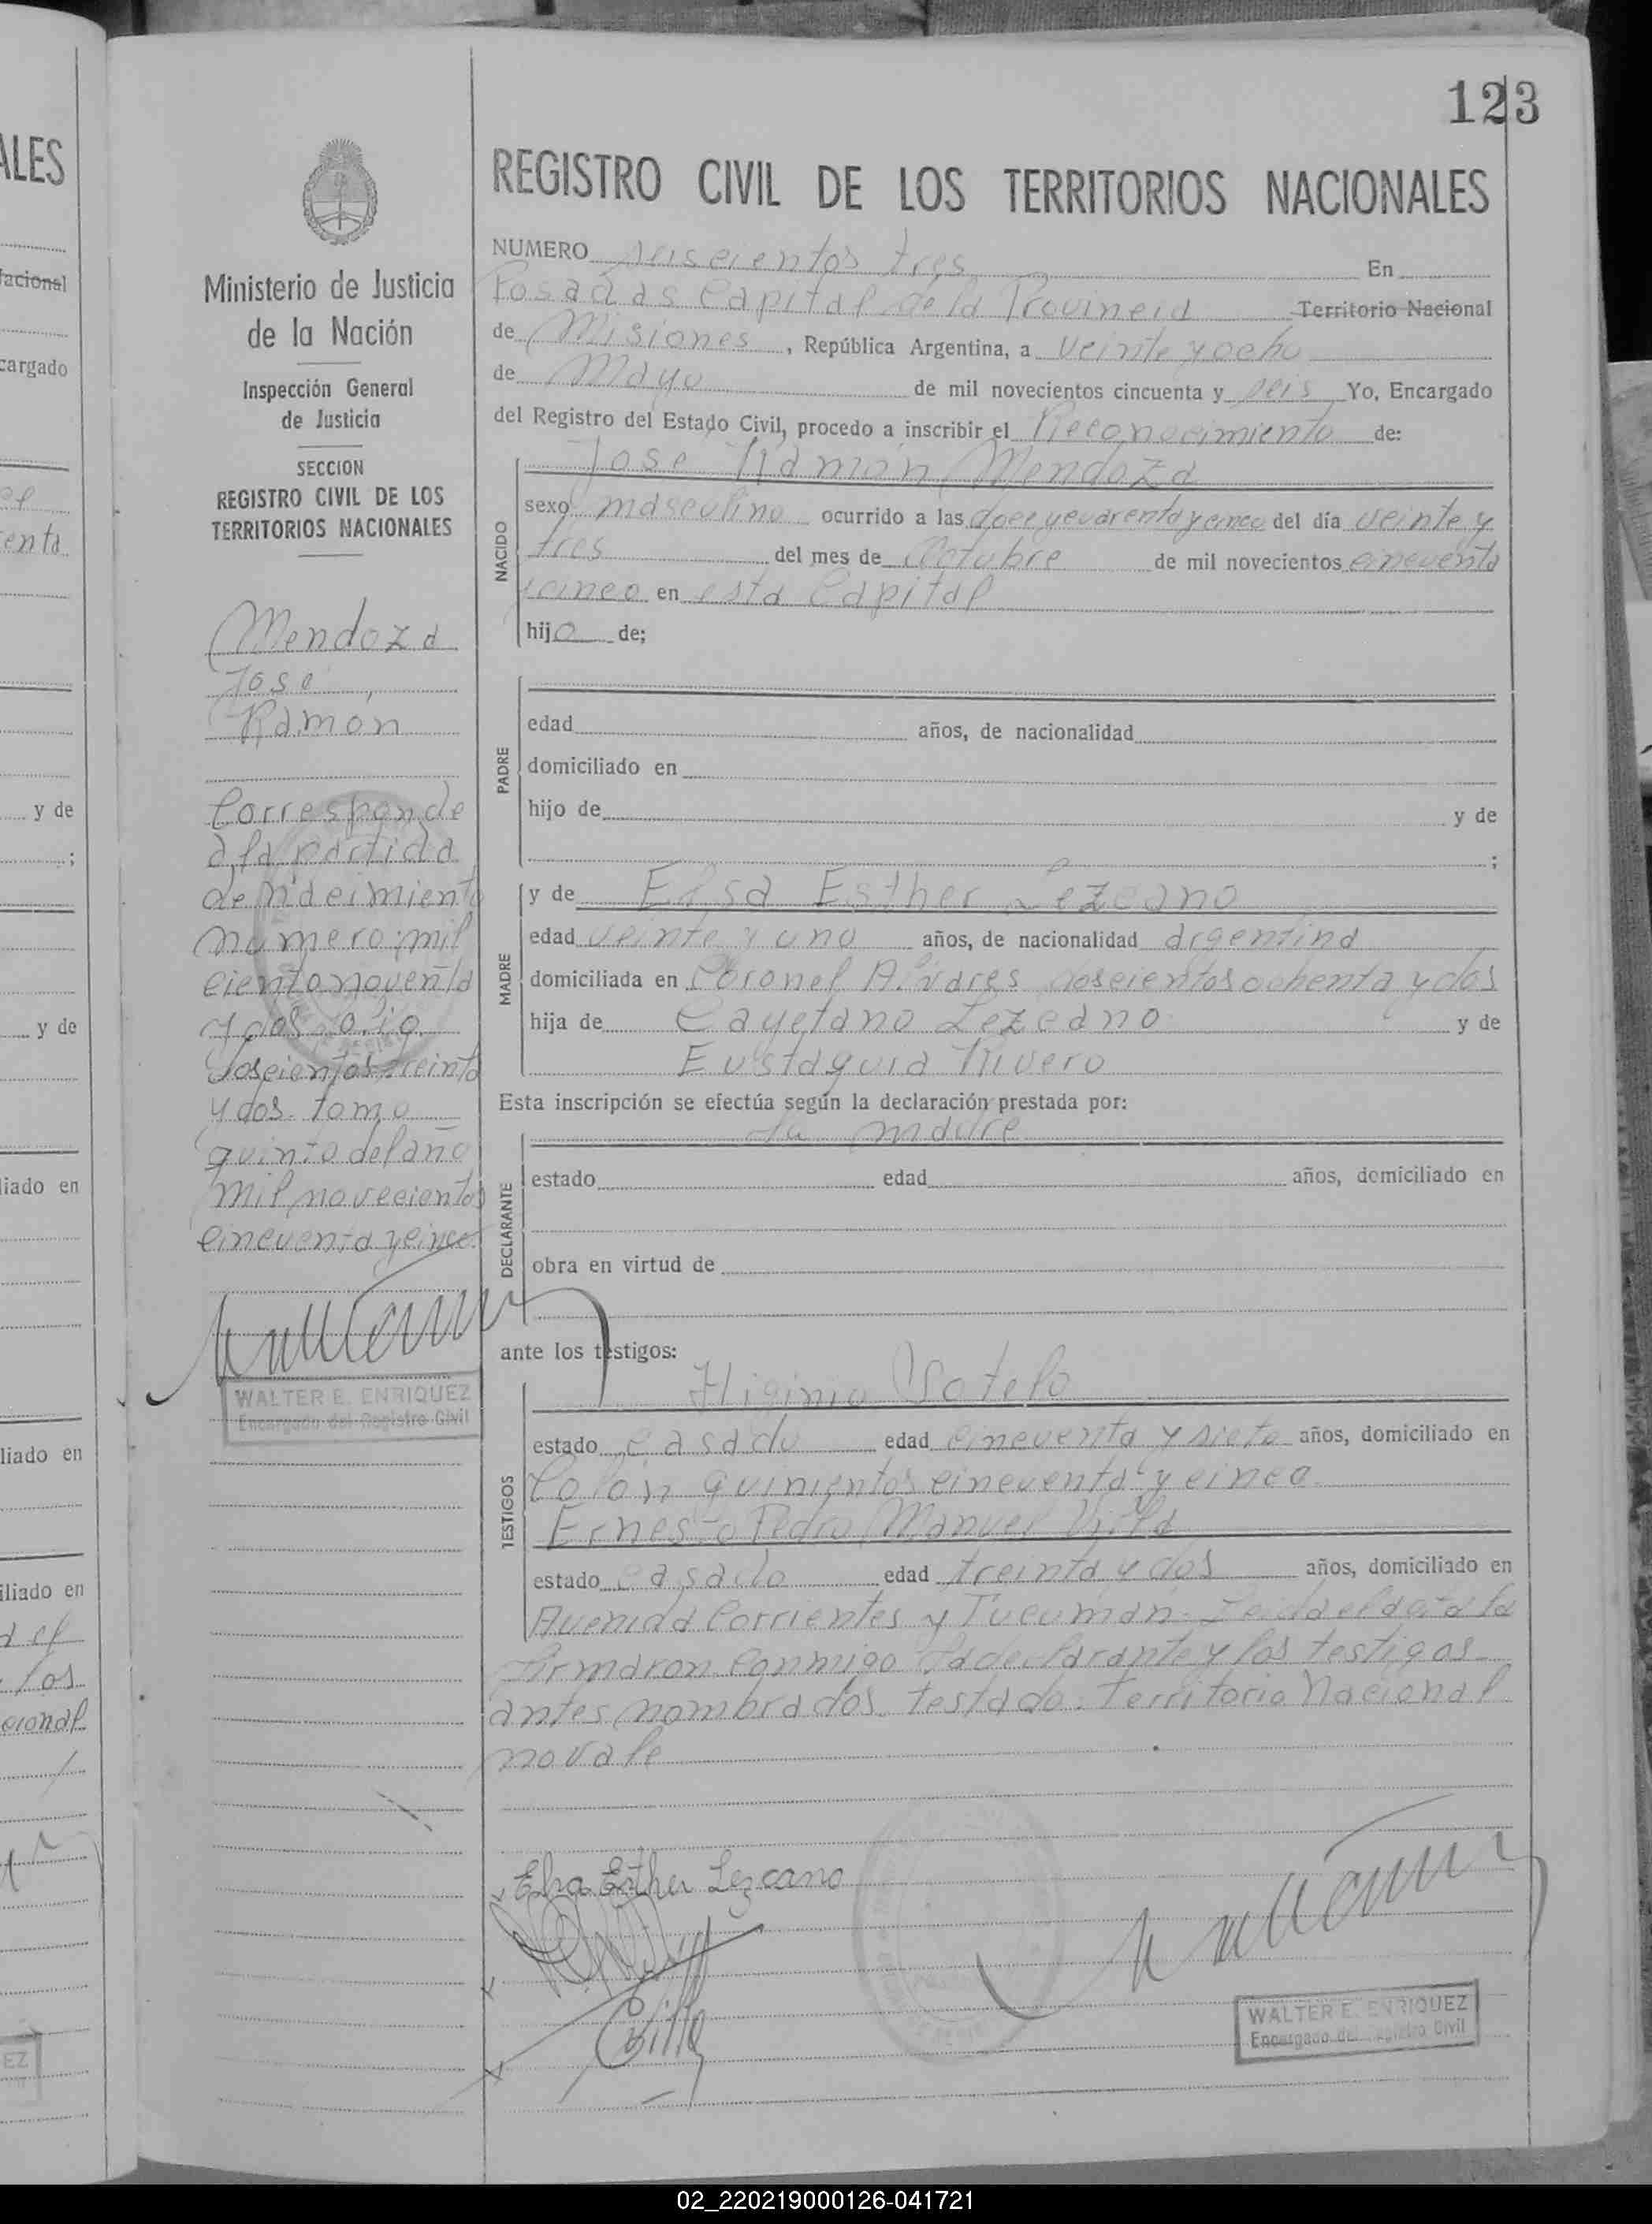 123
ALES
REGISTRO CIVIL DE LOS TERRITORIOS NACIONALES
Ministerio de Justicia
de la Nación
Inspección General
de Justicia
SECCION
REGISTRO CIVIL DE LOS
TERRITORIOS NACIONALES
Mendoza
José
Ramón
Corresponde
a la partida
de nacimiento
numero: mil
ciento noventa
y dos folio
doscientos treinta
y dos tomo
quinto del año
mil novecientos
cincuenta y cinco
WALTER E. ENRIQUEZ
Encargado del Registro Civil
NUMERO seiscientos tres En
Posadas Capital de la Provincia Territorio Nacional
de Misiones, República Argentina, a veinte y ocho
de Mayo de mil novecientos cincuenta y seis Yo, Encargado
del Registro del Estado Civil, procedo a inscribir el Reconocimiento de:
José Ramón Mendoza
NACIDO
sexo masculino ocurrido a las doce y cuarenta y cinco del día veinte y
tres del mes de Octubre de mil novecientos cincuenta
y cinco en esta Capital
hijo de;
PADRE
edad años, de nacionalidad
domiciliado en
hijo de y de
;
MADRE
y de Elsa Esther Lezcano
edad veinte y uno años, de nacionalidad argentina
domiciliada en Coronel Alvares doscientos ochenta y dos
hija de Cayetano Lezcano y de
Eustaquia Rivero
Esta inscripción se efectúa según la declaración prestada por:
la madre
DECLARANTE
estado edad años, domiciliado en
obra en virtud de
ante los testigos:
Higinio Sotelo
TESTIGOS
estado casado edad cincuenta y siete años, domiciliado en
Colón quinientos cincuenta y cinco
Ernesto Pedro Manuel Villa
estado casado edad treinta y dos años, domiciliado en
Avenida Corrientes y Tucumán. Leida el acta la
firmaron conmigo la declarante y los testigos
antes nombrados. testado: Territorio Nacional
no vale
Elsa Esther Lezcano
WALTER E. ENRIQUEZ
Encargado del Registro Civil
02_220219000126-041721